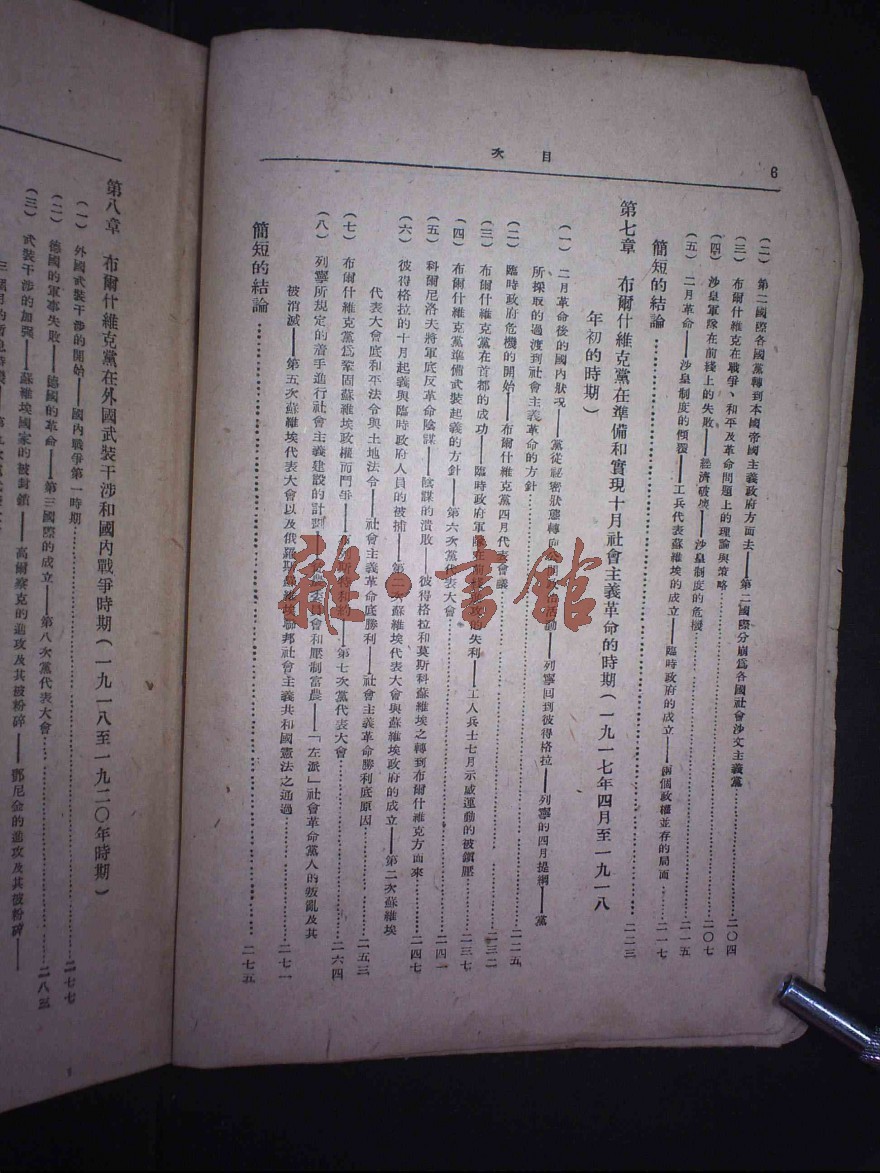 目次
6
(二) 第二國際各國黨轉到本國帝國主義政府方面去——第二國際分崩爲各國社會沙文主義黨……二〇四
(三) 布爾什維克在戰爭、和平及革命問題上的理論與策略……二〇七
(四) 沙皇軍隊在前綫上的失敗——經濟破壞——沙皇制度的危機……二一五
(五) 二月革命——沙皇制度的傾覆——工兵代表蘇維埃的成立——臨時政府的成立——兩個政權並存的局面……二一七
簡短的結論……二二三
第七章 布爾什維克黨在準備和實現十月社會主義革命的時期(一九一七年四月至一九一八
年初的時期)
(一) 二月革命後的國內狀况——黨從祕密狀態轉向公開政治活動——列寧回到彼得格拉——列寧的四月提綱——黨
所採取的過渡到社會主義革命的方針……二二五
(二) 臨時政府危機的開始——布爾什維克黨四月代表會議……二三二
(三) 布爾什維克黨在首都的成功——臨時政府軍隊在前綫進攻的失利——工人兵士七月示威運動的被鎮壓……二三七
(四) 布爾什維克黨準備武裝起義的方針——第六次黨代表大會……二四一
(五) 科爾尼洛夫將軍底反革命陰謀——陰謀的潰敗——彼得格拉和莫斯科蘇維埃之轉到布爾什維克方面來……二四七
(六) 彼得格拉的十月起義與臨時政府人員的被捕——第二次蘇維埃代表大會與蘇維埃政府的成立——第二次蘇維埃
代表大會底和平法令與土地法令——社會主義革命底勝利——社會主義革命勝利底原因……二五三
(七) 布爾什維克黨爲鞏固蘇維埃政權而鬥爭——布列斯特和約——第七次黨代表大會……二六四
(八) 列寧所規定的着手進行社會主義建設的計劃——貧農委員會和壓制富農——「左派」社會革命黨人的叛亂及其
被消滅——第五次蘇維埃代表大會以及俄羅斯蘇維埃聯邦社會主義共和國憲法之通過……二七一
簡短的結論……二七五
第八章 布爾什維克黨在外國武裝干涉和國內戰爭時期(一九一八至一九二〇年時期)
(一) 外國武裝干涉的開始——國內戰爭第一時期……二七七
(二) 德國的軍事失敗——德國的革命——第三國際的成立——第八次黨代表大會……二八三
(三) 武裝干涉的加强——蘇維埃國家的被封鎖——高爾察克的進攻及其被粉碎——鄧尼金的進攻及其被粉碎——
雜·書館